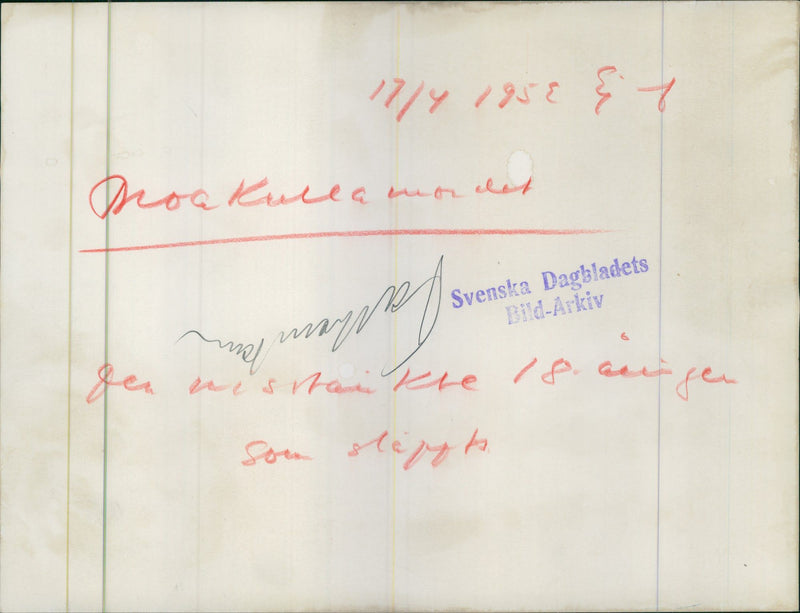 17/4 1952 Ej
Moakullamordet
Svenska Dagbladets
Bild-Arkiv
Den misstänkte 18-åringen
som släppts